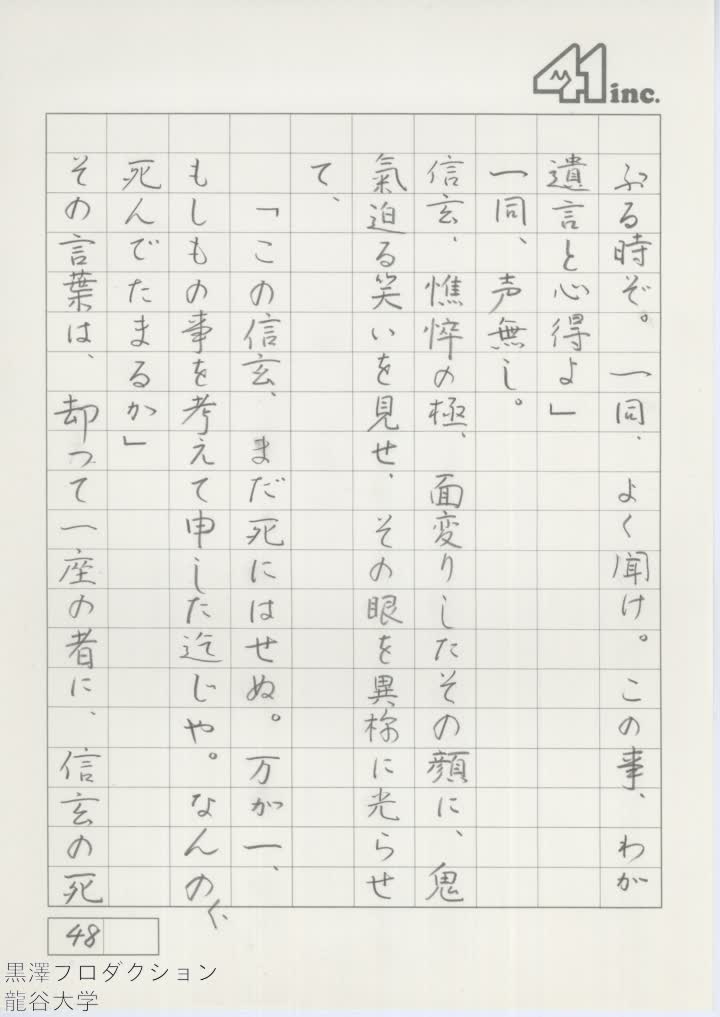 41 inc.
ぶる時ぞ。一同、よく聞け。この事、わが
遺言と心得よ」
一同、声無し。
信玄、憔悴の極、面変りしたその顔に、鬼
氣迫る笑いを見せ、その眼を異様に光らせ
て、
「この信玄、まだ死にはせぬ。万が一、
もしもの事を考えて申した迄じや。なんの、
死んでたまるか」
その言葉は、却って一座の者に、信玄の死
48
黒澤プロダクション
龍谷大学